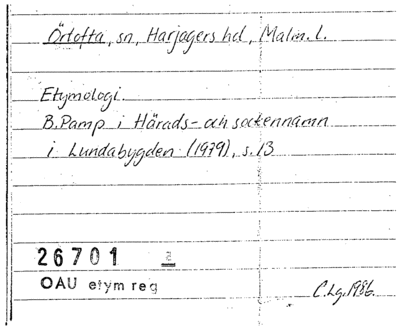 Örtofta, sn, Harjagers hd, Malm. l.
Etymologi.
B. Pamp i Härads- och sockennamn
i Lundabygden (1979), s. 13
26701 a
OAU etym reg
C. Lg. 1986.